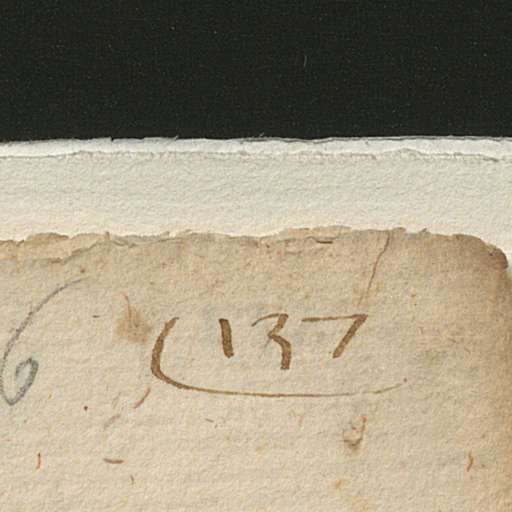 6 137